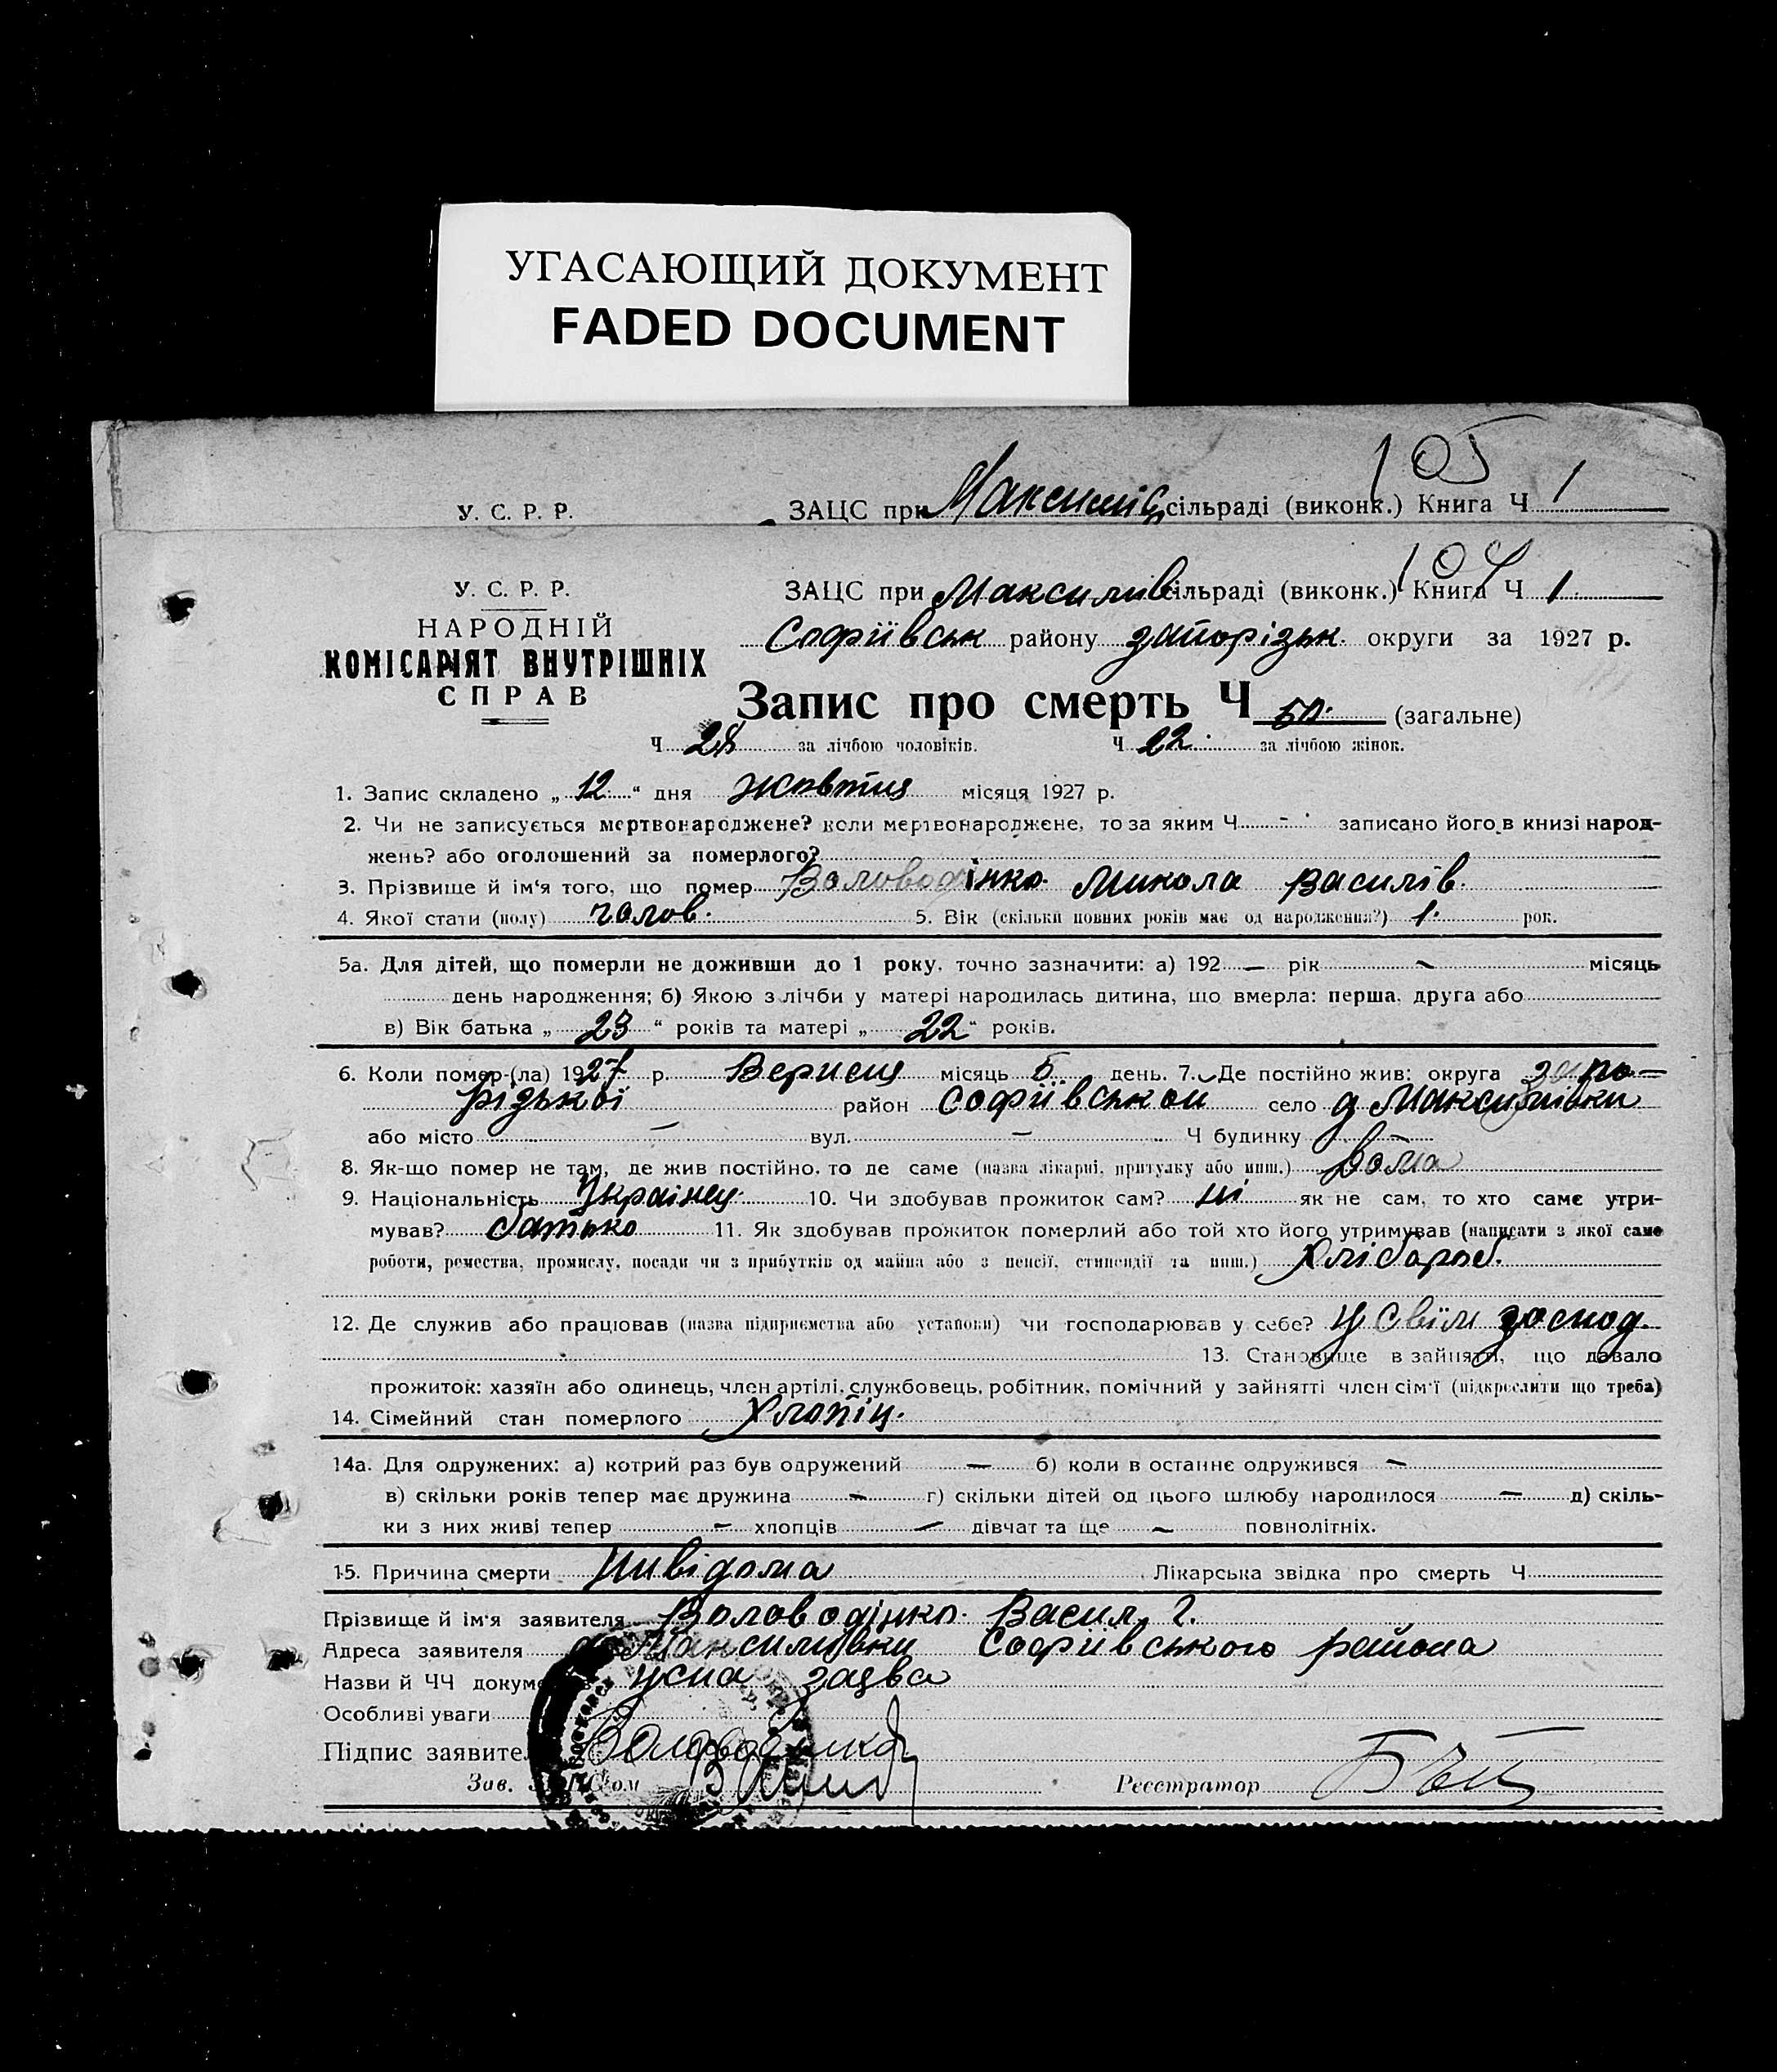 УГАСАЮЩИЙ ДОКУМЕНТ
FADED DOCUMENT
105
У. С. Р. Р. ЗАЦС при сільраді (виконк.) Книга Ч 1
104
У. С. Р. Р. ЗАЦС при Максимів сільраді (виконк.) Книга Ч 1
НАРОДНІЙ Софіївськ району запорізьк. округи за 1927 р.
КОМІСАРІЯТ ВНУТРІШНІХ
СПРАВ
Запис про смерть Ч 50. (загальне)
Ч 28 за лічбою чоловіків. Ч 22. за лічбою жінок.
1. Запис складено „ 12 “ дня жовтня місяця 1927 р.
2. Чи не записується мертвонароджене? коли мертвонароджене, то за яким Ч - записано його в книзі народ-
жень? або оголошений за померлого?
3. Прізвище й ім'я того, що помер Воловодінко. Микола Василів.
4. Якої стати (полу) чолов. 5. Вік (скільки повних років має од народження?) 1. рок.
5а. Для дітей, що померли не доживши до 1 року, точно зазначити: а) 192 — рік - місяць
день народження; б) Якою з лічби у матері народилась дитина, що вмерла: перша, друга або
в) Вік батька „ 23 “ років та матері „ 22 “ років.
6. Коли помер-(ла) 1927 р. Вересня місяць 5 день. 7. Де постійно жив: округа запо-
різької район Софіївськой село д Максимівки
або місто — вул. — Ч будинку
8. Як-що помер не там, де жив постійно, то де саме (назва лікарні, притулку або инш.) дома
9. Національність Українец. 10. Чи здобував прожиток сам? ні як не сам, то хто саме утри-
мував? батько 11. Як здобував прожиток померлий або той хто його утримував (написати з якої саме
роботи, ремества, промислу, посади чи з прибутків од майна або з пенсії, стипендії та инш.) Хлібороб.
12. Де служив або працював (назва підприємства або установи) чи господарював у себе? У Свіїм господ.
13. Становище в зайняти, що давало
прожиток: хазяїн або одинець, член артілі, службовець, робітник, помічний у зайнятті член сім'ї (підкреслити що треба)
14. Сімейний стан померлого Хлопіц.
14а. Для одружених: а) котрий раз був одружений — б) коли в останнє одружився -
в) скільки років тепер має дружина - г) скільки дітей од цього шлюбу народилося — д) скіль-
ки з них живі тепер - хлопців — дівчат та ще - повнолітніх.
15. Причина смерти нивідома Лікарська звідка про смерть Ч
Прізвище й ім'я заявителя Воловодінко. Васил. Г.
Адреса заявителя д Максимівки Софіївського района
Назви й ЧЧ докуме усна заява
Особливі уваги
Підпис заявите Воловодінко
Зав. Реєстратор